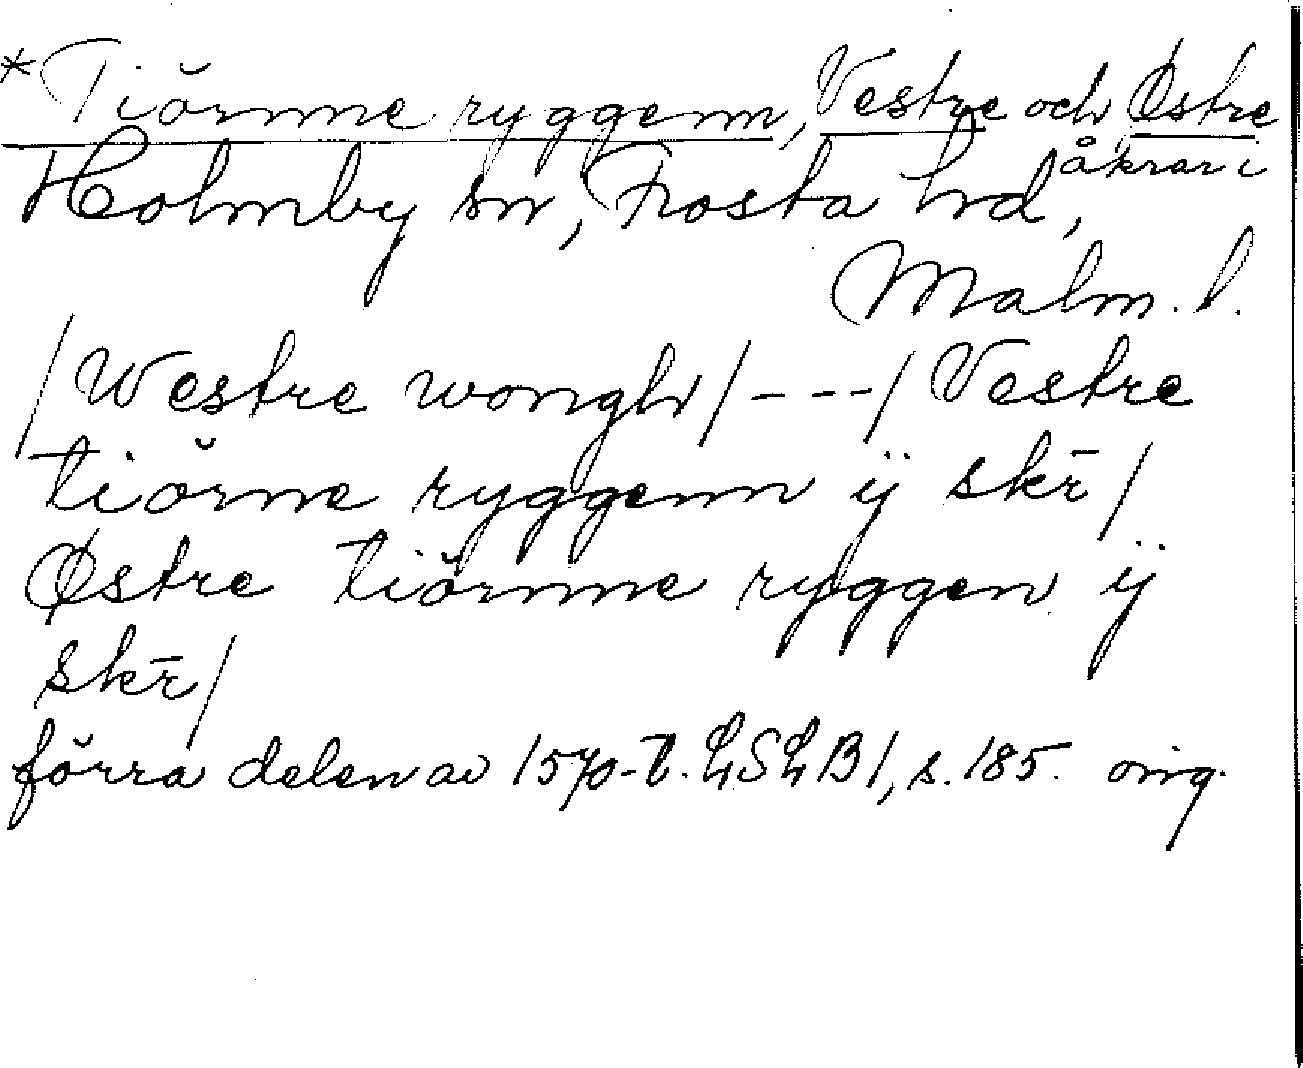 *Tiŏrnne ryggenn, Vestre och Østre
åkrar i
Holmby sn, Frosta hd,
Malm. l.
/Westre wongh/---/Vestre
tiŏrne ryggenn ÿ skr̄/
Østre tiŏrnne ryggen ÿ
skr̄/
förra delen av 1570-t. LSLB1, s. 185. orig.